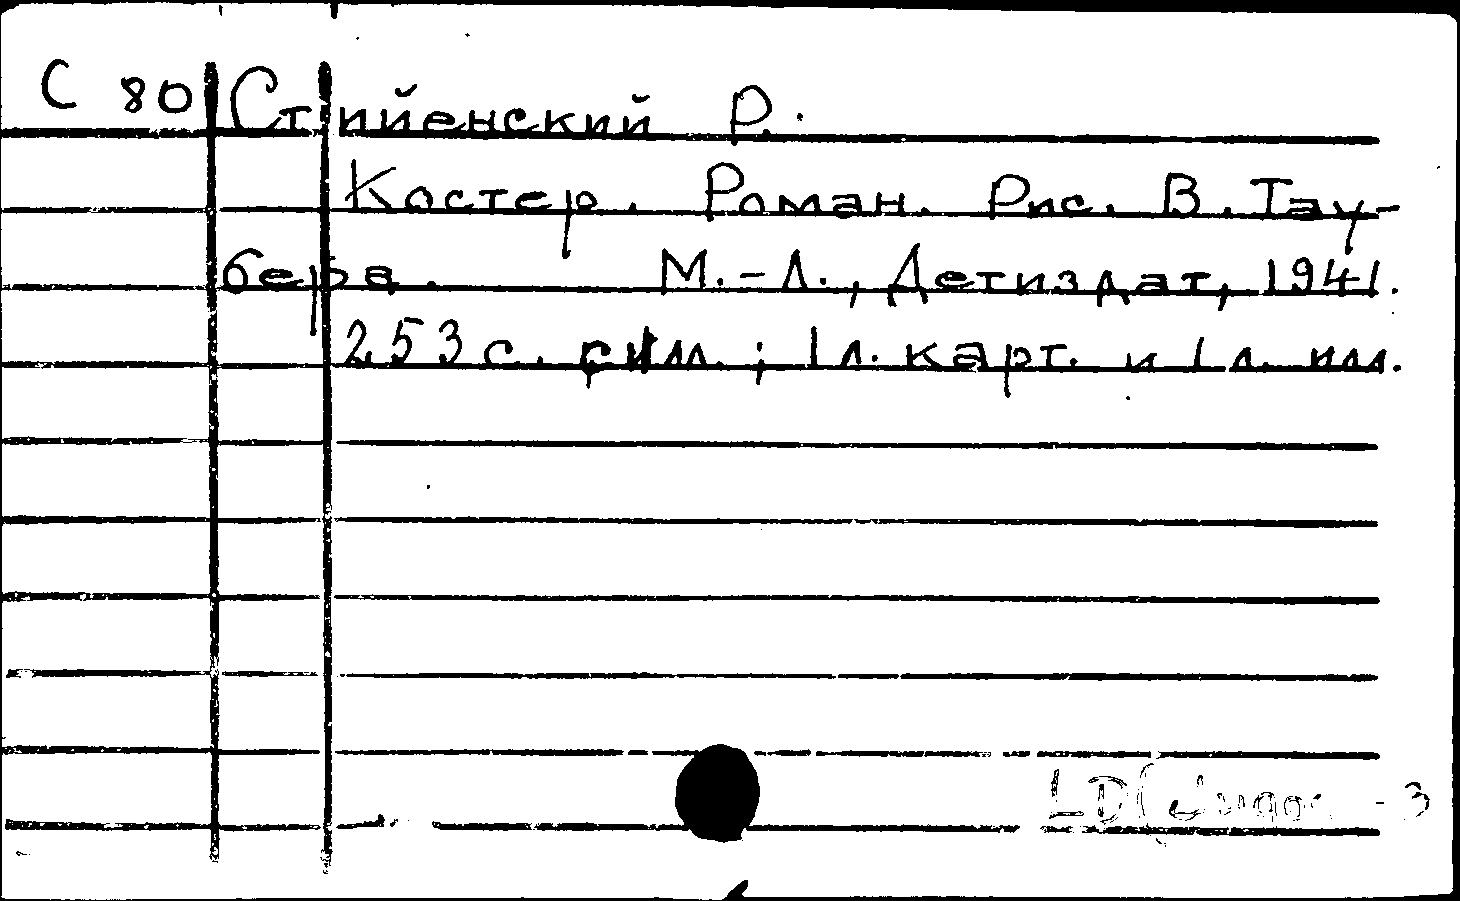 С 80 Стийенский Р.
Костер. Роман. Рис. В. Тау-
бера. М.-Л., Детиздат, 1941.
253 с. с илл.; 1 л. карт. и 1 л. илл.
- 3